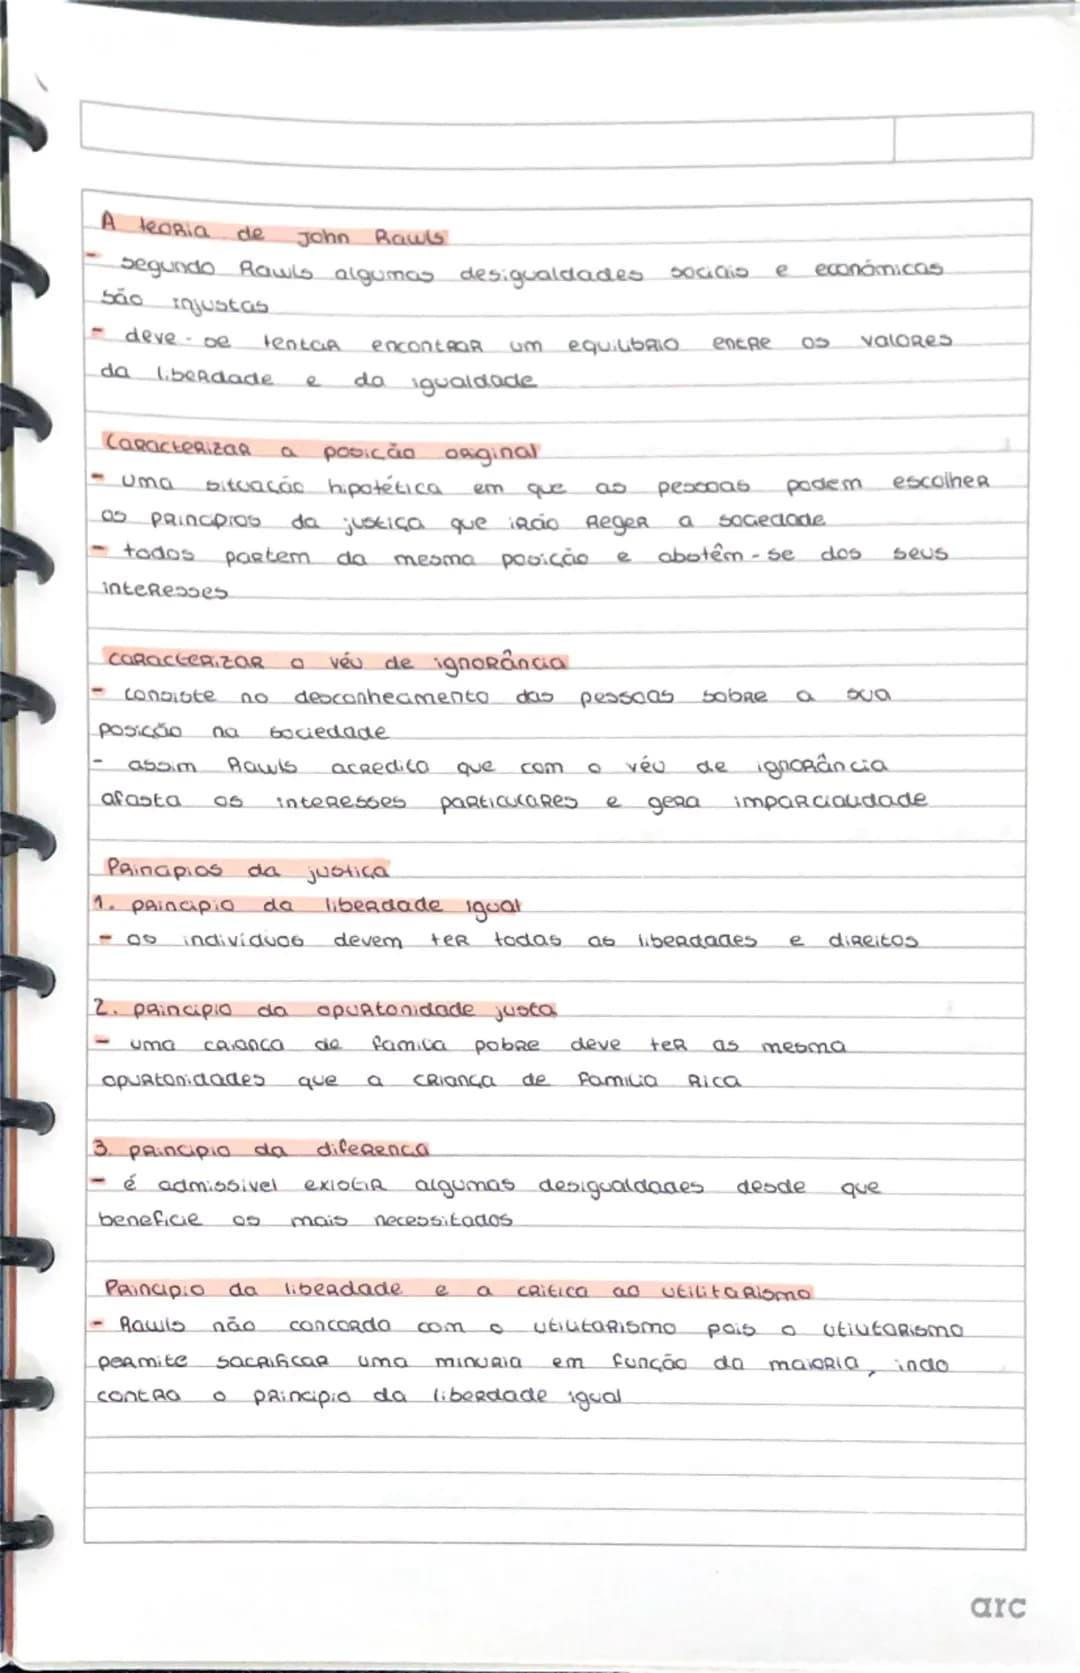 A teoria de John Rawls
- segundo Rawls algumas desigualdades sociais e económicas
são injustas
- deve-se tentar encontrar um equilibrio entre os valores
da liberdade e da igualdade
Caracterizar a posição orginal
- uma situação hipotética em que as pessoas podem escolher
os principios da justiça que irão reger a sociedade
- todos partem da mesma posição e abstêm-se dos seus
interesses
caracterizar o véu de ignorância
- consiste no desconhecimento das pessoas sobre a sua
posição na sociedade
- assim Rawls acredita que com o véu de ignorância
afasta os interesses particulares e gera imparcialidade
Principios da justiça
1. principio da liberdade igual
- os indivíduos devem ter todas as liberdades e direitos
2. principio da opurtonidade justa
- uma criança de familia pobre deve ter as mesma
opurtonidades que a criança de familia rica
3. principio da diferença
- é admissivel existir algumas desigualdades desde que
beneficie os mais necessitados
Principio da liberdade e a critica ao utilitarismo
- Rawls não concorda com o utilitarismo pois o utilitarismo
permite sacrificar uma minuria em função da maioria, indo
contra o principio da liberdade igual
arc